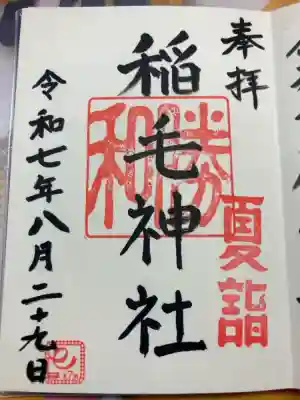 奉拝
夏詣
稲毛神社
勝和
令和七年八月二十九日